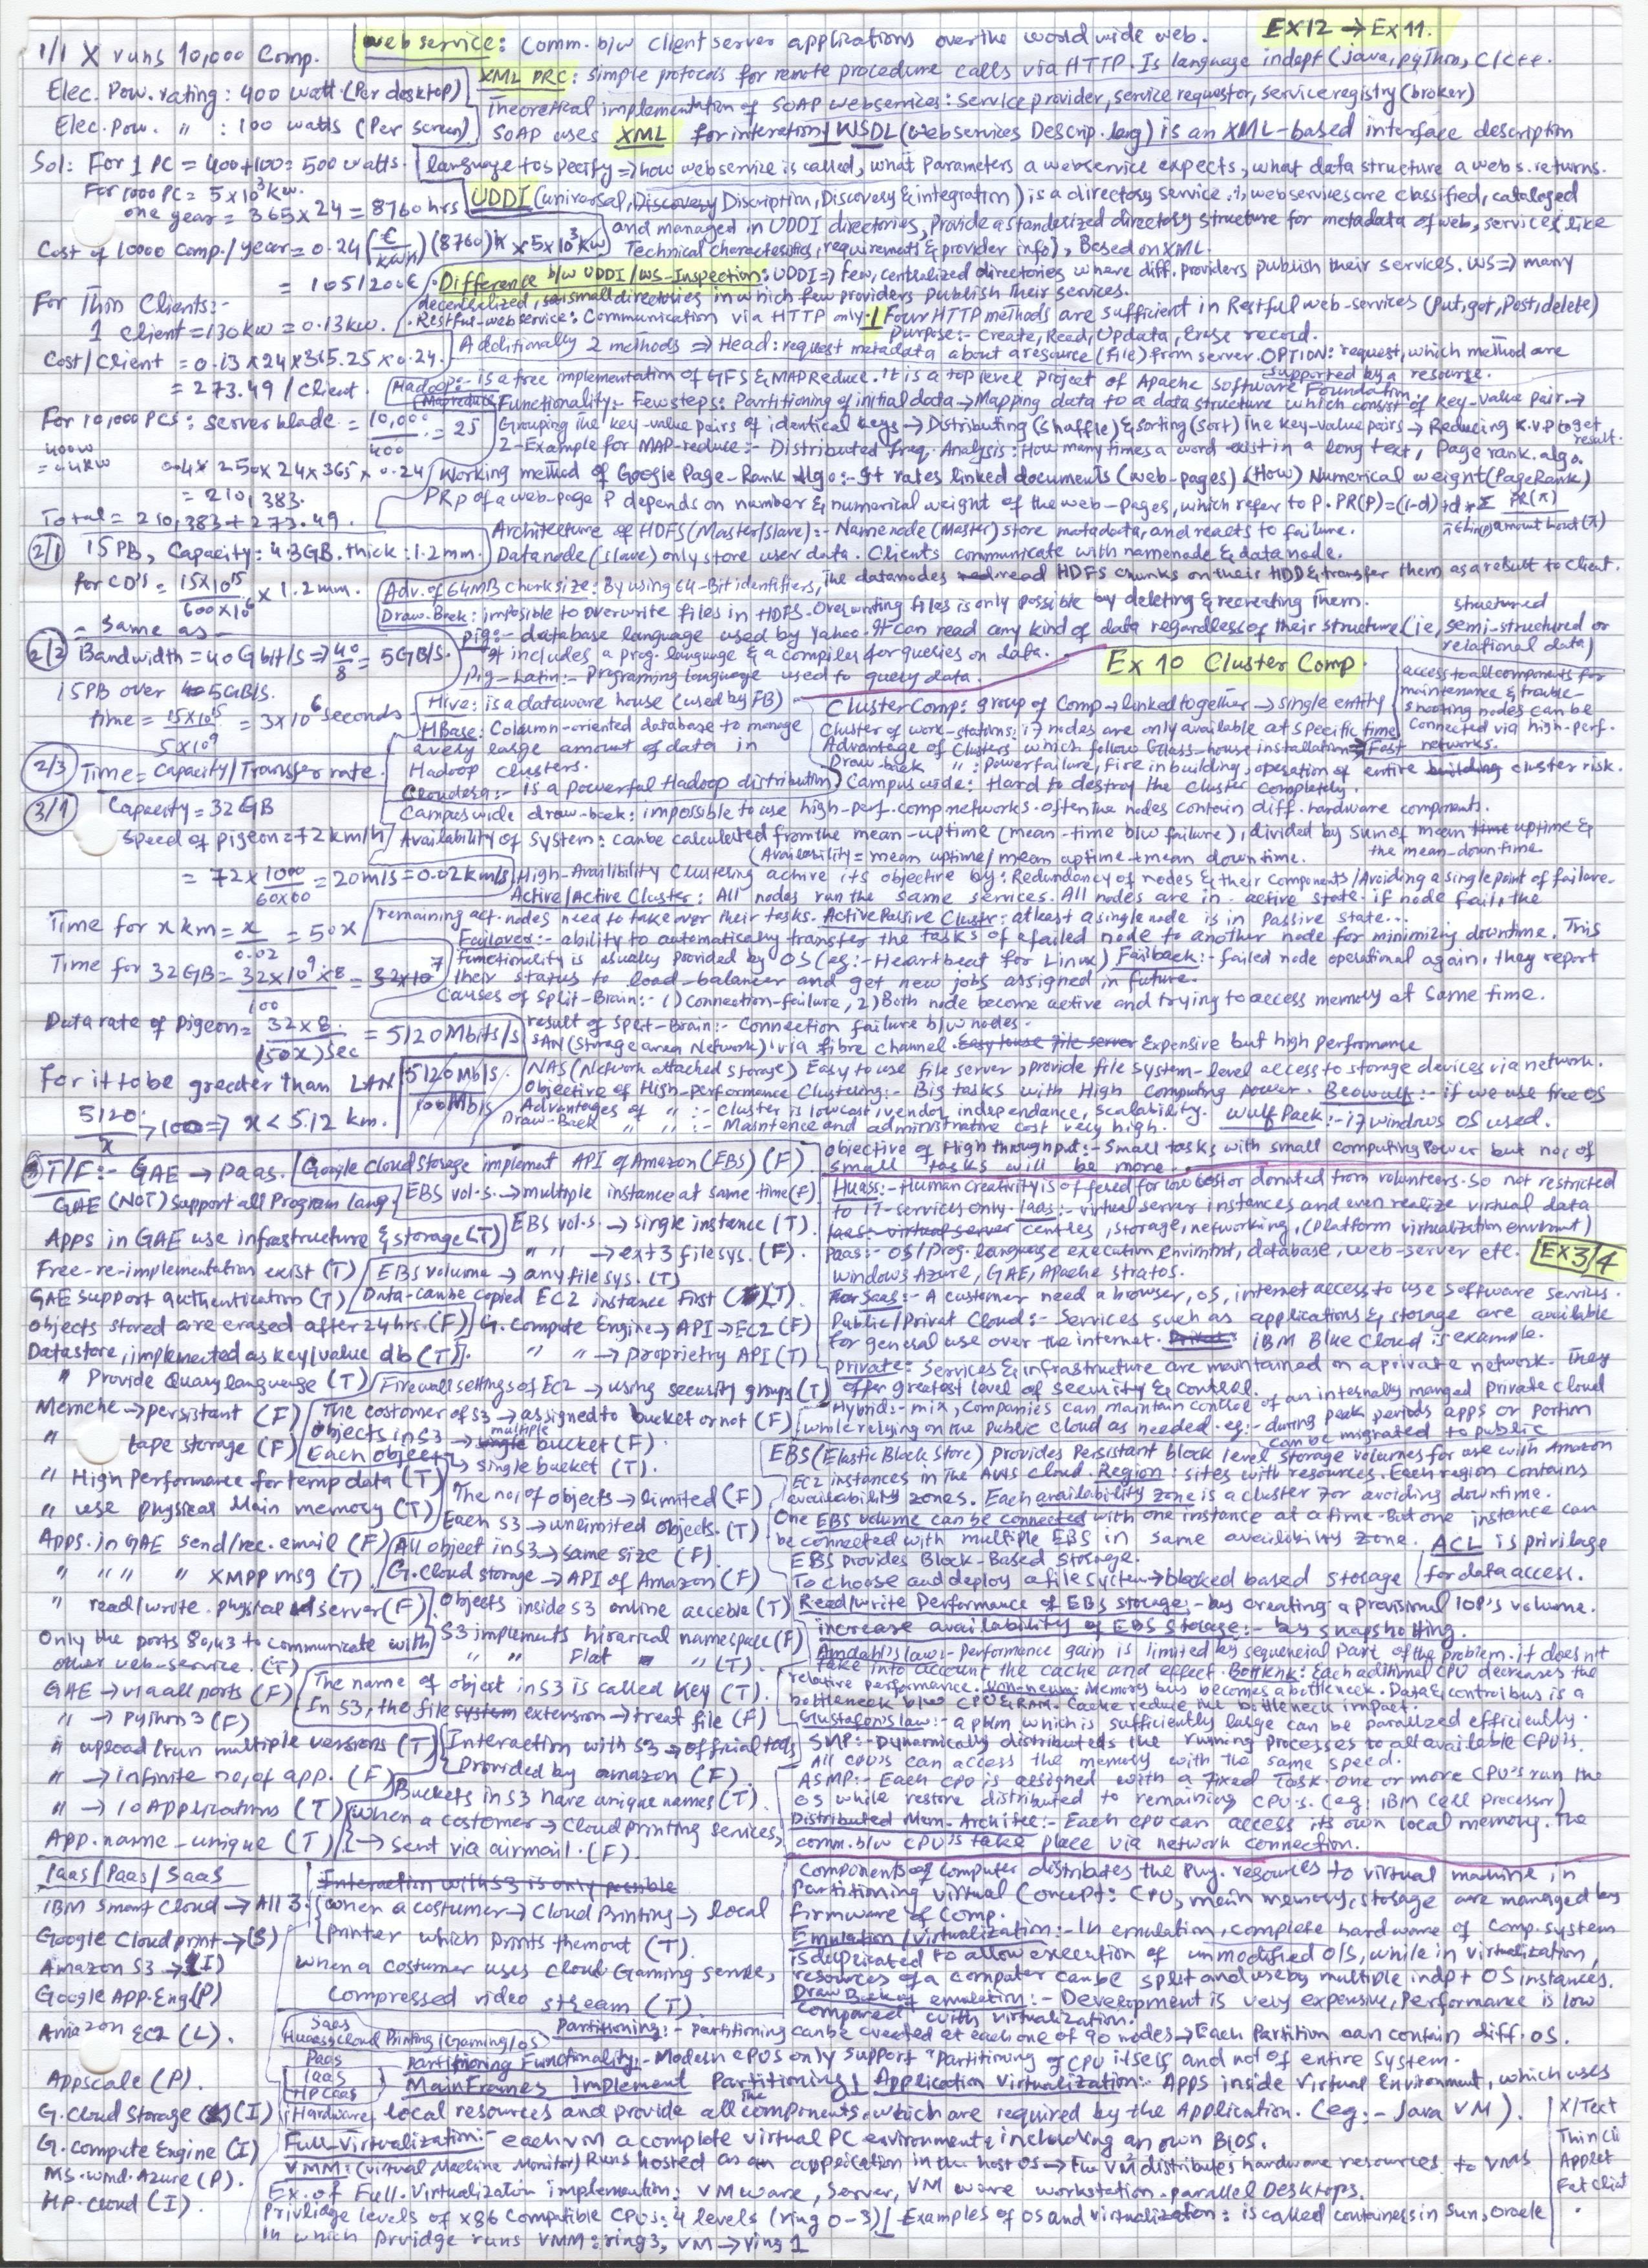 1/1 X runs 10,000 Comp.
Elec. Pow. rating: 400 watt (Per desktop)
Elec. Pow. " : 100 watts (Per screen)
Sol: For 1 PC = 400+100 = 500 watts.
For 1000 PC = 5 x 10³ kw.
one year = 365 x 24 = 8760 hrs
Cost of 10000 Comp./year = 0.24 (€/kwh) (8760)h x 5x10³ kw
= 105/200€
For Thin Clients:-
1 client = 130kw = 0.13kw.
Cost/client = 0.13 x 24 x 365.25 x 0.24
= 273.49 / client.
For 10,000 PCs: server blade = 10,000/400 = 25
400w = 0.4kw
0.4 x 250 x 24 x 365 x 0.24
= 210,383.
Total = 210,383 + 273.49.
2/1 15PB, Capacity: 4.3GB. thick: 1.2mm.
For CD's = 15x10¹⁵/600x10⁶ x 1.2mm.
= same as -
2/2 Bandwidth = 40Gbit/s => 40/8 = 5GB/s.
15PB over 5GB/s.
time = 15x10¹⁵/5x10⁹ = 3x10⁶ seconds
2/3 Time = Capacity/Transfer rate.
3/1 Capacity = 32GB
speed of pigeon = 72km/h
= 72 x 1000/60x60 = 20m/s = 0.02km/s
Time for x km = x/0.02 = 50x
Time for 32GB = 32x10⁹x8/100 = 32x10⁷
Data rate of pigeon = 32x8/(50x)sec = 5120Mbits/s
For it to be greater than LAN 5120Mb/s 100Mb/s
5120/x > 100 => x < 5.12 km.
Web service: Comm. b/w client server applications over the world wide web. EX12 → Ex11.
XML PRC: simple protocols for remote procedure calls via HTTP. Is language indept (java, python, C/C++.
Theoretical implementation of SOAP webservices: service provider, service requestor, service registry (broker)
SOAP uses XML for interation | WSDL (Webservices Descrip. lang) is an XML-based interface description
language to specify => how webservice is called, what parameters a webservice expects, what data structure a webs. returns.
UDDI (universal, Discription, Discovery & integration) is a directory service, webservices are classified, cataloged
and managed in UDDI directories, Provide a standerized directory structure for metadata of web, services (like
Technical characteristics, requirements & provider info), Based on XML.
Difference b/w UDDI/WS-Inspection: UDDI => few, centralized directories where diff. providers publish their services. WS => many
decentralized, small directories in which few providers publish their services.
Restful-webservice: Communication via HTTP only. | Four HTTP methods are sufficient in Restful web-services (put, get, Post, delete)
Purpose:- Create, Read, Updata, Erase record.
Additionally 2 methods => Head: request metadata about a resource (file) from server. OPTION: request, which method are
supported by a resourse.
Hadoop:- is a free implementation of GFS & MAPReduce. It is a top level project of Apache Software Foundation
Functionality:- Few steps: Partitioning of initial data → Mapping data to a data structure which consist of key-value pair →
Grouping the key-value pairs of identical keys → Distributing (shaffle) & sorting (sort) the key-value pairs → Reducing K.V.P to get result.
2-Example for MAP-reduce:- Distributed freq. Analysis: How many times a word exist in a long text, Page rank. algo.
Working method of Google Page-Rank Algo:- It rates linked documents (web-pages) (How) Numerical weight (PageRank)
PRp of a web-page P depends on number & numerical weight of the web-pages, which refer to P. PR(P)=(1-d)+d*Σ PR(π)
Architecture of HDFS (Master/slave):- Namenode (Master) store matadata, and reacts to failure.
Datanode (slave) only store user data. Clients communicate with namenode & datanode.
Adv. of 64MB chunk size: By using 64-Bit identifiers, the datanodes read HDFS chunks on their HDD & transfer them as a result to client.
Draw-Back: imposible to overwrite files in HDFS. Overwriting files is only possible by deleting & recreating them.
Pig:- database language used by Yahoo. It can read any kind of data regardless of their structure (ie, semi-structured or structured relational data)
It includes a prog. language & a compiler for queries on data.
Pig-Latin:- Programing language used to query data.
Hive: is a dataware house (used by FB)
HBase: Column-oriented database to manage
avery large amount of data in
Hadoop clusters.
Cloudera:- is a powerful Hadoop distribution
Ex 10 Cluster Comp
Cluster Comp: group of Comp → linked together → single entity
Cluster of work-stations: if nodes are only available at specific time
Advantage of Clusters which follow Glass-house installation => Fast
access to all components for
maintenance & trouble-
shooting nodes can be
connected via high-perf.
networks.
Draw-back " : power failure, Fire in building, operation of entire cluster risk.
Campus wide: Hard to destroy the cluster completely.
Campus wide draw-back: impossible to use high-perf. comp networks. often the nodes contain diff. hardware components.
Availability of System: can be calculated from the mean-uptime (mean-time b/w failure), divided by sum of mean uptime &
the mean-downtime
(Availability = mean uptime/mean uptime + mean down time.
High-Availibility Clustering achive its objective by: Redundancy of nodes & their Components / Avoiding a single point of failure.
Active/Active Cluster: All nodes run the same services. All nodes are in active state. if node fail, the
remaining act. nodes need to take over their tasks. Active Passive Cluster: atleast a single node is in passive state...
Failover:- ability to automatically transfer the tasks of a failed node to another node for minimizing downtime. This
functionality is usually provided by OS (eg:- Heartbeat for Linux) Failback:- failed node operational again, they report
their status to load-balancer and get new jobs assigned in future.
Causes of split-Brain:- 1) connection-failure, 2) Both node become active and trying to access memory at same time.
result of Split-Brain:- Connection failure b/w nodes.
SAN (Storage area Network) via fibre channel. Expensive but high performance
NAS (Network attached storage) Easy to use file server, provide file system-level access to storage devices via network.
objective of High-performance Clustering:- Big tasks with High Computing power. Beowulf:- if we use free OS
Advantages of " :- cluster is low cost, vendor independance, scalability. Wulf Pack:- if windows OS used.
Draw-Back " " :- Maintence and administrative cost very high.
objective of High throughput:- Small tasks with small computing Power but no. of
small tasks will be more.
T/F:- GAE → Paas.
GAE (NOT) Support all Program lang
Apps in GAE use infrastructure & storage (T)
Free-re-implementation exist (T)
GAE support authentication (T)
objects stored are erased after 24hrs. (F)
Datastore, implemented as key/value db (T)
" Provide Quary language (T)
Memche → persistant (F)
" tape storage (F)
" High Performance for temp data (T)
" use physical Main memory (T)
Apps. in GAE send/rec. email (F)
" " " " XMPP msg (T)
" read/write. physical server (F)
Only the ports 80,43 to communicate with
other web-service. (T)
GAE → via all ports (F)
" → Python 3 (F)
" upload/run multiple versions (T)
" → infinite no. of app. (F)
" → 10 Applications (T)
App. name - unique (T)
Google Cloud Storage implement API of Amazon (EBS) (F)
EBS vol.s. → multiple instance at same time (F)
EBS vol.s. → single instance (T).
" " → ext3 filesys. (F).
EBS volume → any file sys. (T)
Data can be copied EC2 instance First (T).
G. Compute Engine → API → EC2 (F)
" " → proprietry API (T)
Firewall settings of EC2 → using security groups (T)
The costomer of S3 → assigned to bucket or not (F)
objects in S3 → multiple bucket (F).
Each object → single bucket (T).
The no. of objects → limited (F)
Each S3 → unlimited objects. (T)
All object in S3 → same size (F).
G. Cloud storage → API of Amazon (F)
Objects inside S3 online acceble (T)
S3 implements hirarical namespace (F)
" " Flat " (T).
The name of object in S3 is called Key (T).
In S3, the file extension → treat file (F)
Interaction with S3 → official tools
Provided by amazon (F).
Buckets in S3 have unique names (T).
When a customer → Cloud printing services,
→ Sent via airmail. (F).
Interaction with S3 is only possible
when a costumer → Cloud Printing → local
printer which prints them out (T).
when a costumer uses cloud Gaming service,
compressed video stream (T).
Huass:- Human Creativity is offered for low cost or donated from volunteers. so not restricted
to IT-services only. Iaas:- virtual server instances and even realize virtual data
centres, storage, networking, (platform virtualization envirmnt)
Paas:- OS/Prog. language execution envirmnt, database, web-server etc. EX3/4
Windows Azure, GAE, Apache Stratos.
For Saas:- A customer need a browser, os, internet access to use software services.
Public/Privat Cloud:- Services such as applications & storage are available
for general use over the internet. IBM Blue Cloud is example.
Private: Services & infrastructure are maintained on a private network. They
offer greatest level of security & control.
Hybrid:- mix, Companies can maintain control of an internally manged private cloud
while relying on the public cloud as needed. eg:- during peak periods apps or portion
can be migrated to public
EBS (Elastic Block Store) Provides Persistant block level storage volumes for use with Amazon
EC2 instances in the AWS cloud. Region: sites with resources. Each region contains
availability zones. Each availability zone is a cluster for avoiding downtime.
One EBS volume can be connected with one instance at a time. But one instance can
be connected with multiple EBS in same availability zone. ACL is privilage
EBS Provides Block-Based Storage.
To choose and deploy a file system → blocked based storage for data access.
Read/write Performance of EBS storage:- by creating a provisional IOP's volume.
increase availability of EBS storage:- by snapshotting.
Amdahl's law:- Performance gain is limited by sequencial part of the problem. it does not
take into account the cache and effect. Bottlenk: Each aditional CPU decreases the
relative performance. Von-neum: Memory bus becomes a bottleneck. Data & control bus is a
bottleneck b/w CPU & RAM. Cache reduce the bottleneck impact.
Gustafon's law:- a pblm which is sufficiently large can be parallized efficiently.
SMP:- Dynamically distributeds the running processes to all available CPU's.
All CPU's can access the memory with the same speed.
ASMP:- Each CPU is assigned with a Fixed Task. one or more CPU's run the
OS while restore distributed to remaining CPU's. (eg: IBM Cell processor)
Distributed Mem. Architec:- Each CPU can access its own local memory. The
comm. b/w CPU's take place via network connection.
Iaas/Paas/Saas
IBM Smart Cloud → All 3.
Google Cloud print → (S)
Amazon S3 → (I)
Google App. Eng. (P)
Amazon EC2 (I).
Appscale (P).
G. Cloud Storage (I)
G. Compute Engine (I)
MS. wind. Azure (P).
HP. Cloud (I).
Saas
Huaas: Cloud Printing/Gaming/OS
Paas
Iaas
HPCaas
Hardware
Components of computer distributes the Phy. resources to virtual machine in
Partitioning virtual Concept: CPU, main memory, storage are managed by
Firmware of Comp.
Emulation/virtualization:- In emulation, complete hardware of Comp. system
is duplicated to allow execution of unmodified O/S, while in virtualization,
resources of a computer can be split and use by multiple indpt OS instances.
Draw Back of emulation:- Development is very expensive, Performance is low
compared with virtualization.
Partitioning:- partitioning can be created at each one of 90 nodes → Each Partition can contain diff. OS.
Partitioning Functionality:- Modern CPUs only support "Partitioning of CPU itself and not of entire system.
MainFrames implement Partitioning | Application Virtualization:- Apps inside virtual Environment, which uses
local resources and provide all the components, which are required by the Application. (eg:- Java VM).
Full-Virtualization:- each VM a complete virtual PC environment, including an own BIOS.
VMM: (Virtual Machine Monitor) Runs hosted as an application in the host OS → the VM distributes hardware resources to VMs
Ex. of Full. Virtualization implemention: VMware, Server, VM ware workstation, parallel Desktops.
Priviliage levels of x86 Compatible CPUs: 4 levels (ring 0-3) | Examples of OS and virtualization: is called containers in Sun, Oracle
In which prvidge runs VMM: ring 3, VM → ring 1
X/Text
Thin Cli
Applet
Fat Client